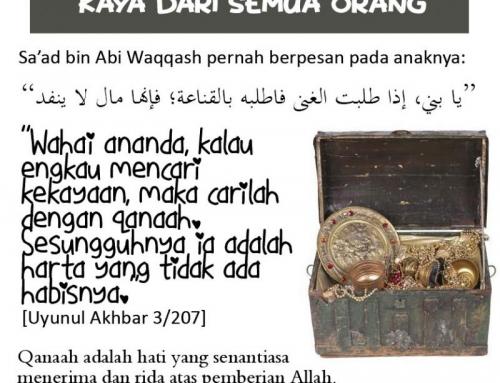 KAYA DARI SEMUA ORANG
Sa'ad bin Abi Waqqash pernah berpesan pada anaknya:
”يا بني، إذا طلبت الغنى فاطلبه بالقناعة؛ فإنها مال لا ينفد“
"Wahai ananda, kalau
engkau mencari
kekayaan, maka carilah
dengan qanaah.
Sesungguhnya ia adalah
harta yang tidak ada
habisnya."
[Uyunul Akhbar 3/207]
Qanaah adalah hati yang senantiasa
menerima dan rida atas pemberian Allah.